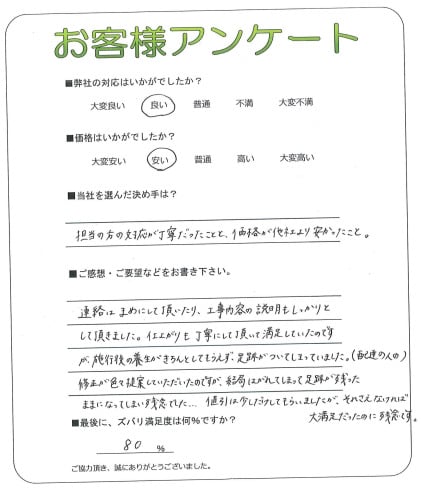 お客様アンケート
■弊社の対応はいかがでしたか？
大変良い 良い 普通 不満 大変不満
■価格はいかがでしたか？
大変安い 安い 普通 高い 大変高い
■当社を選んだ決め手は？
担当の方の対応が丁寧だったことと、価格が他社より安かったこと。
■ご感想・ご要望などをお書き下さい。
連絡はまめにして頂いたり、工事内容の説明もしっかりと
して頂きました。仕上がりも丁寧にして頂いて満足していたのです
が、施行後の養生がきちんとしてもらえず、足跡がついてしまっていました。(配達の人の)
修正が色々提案していただいたのですが、結局はがれてしまって足跡が残った
ままになってしまい残念でした… 値引は少しだけしてもらいましたが、それさえなければ
大満足だったのに残念です。
■最後に、ズバリ満足度は何%ですか？
80 %
ご協力頂き、誠にありがとうございました。